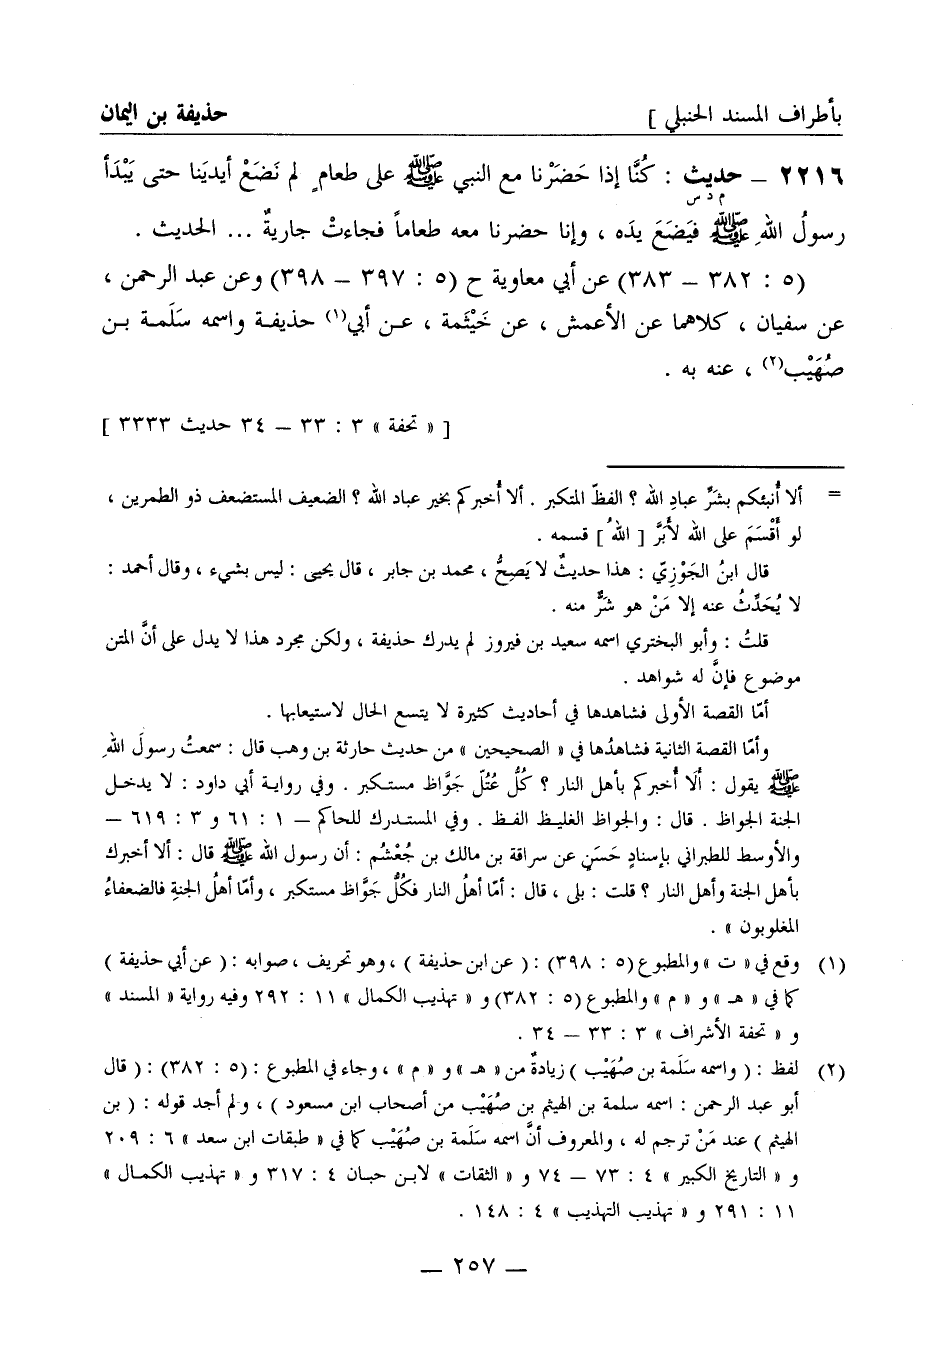 بأطراف المسند الحنبلي ] حذيفة بن اليمان
٢٢١٦ – حديث : كُنَّا إذا حَضَرْنا مع النبي ﷺ على طعامٍ لم نَضَعْ أيدينا حتى يَبْدَأ
م د س
رسولُ اللهِ ﷺ فيَضَعَ يدَه ، وإنا حضرنا معه طعاماً فجاءتْ جاريةٌ ... الحديث .
(٥ : ٣٨٢ – ٣٨٣) عن أبي معاوية ح (٥ : ٣٩٧ – ٣٩٨) وعن عبد الرحمن ،
عن سفيان ، كلاهما عن الأعمش ، عن خَيْثَمة ، عن أبي(١) حذيفة واسمه سَلَمة بن
صُهَيْب(٢) ، عنه به .
[ « تحفة » ٣ : ٣٣ – ٣٤ حديث ٣٣٣٣ ]
= ألا أُنبئكم بشَرِّ عبادِ الله ؟ الفظّ المتكبر . ألا أُخبركم بخير عباد الله ؟ الضعيف المستضعف ذو الطمرين ،
لو أَقْسَمَ على الله لأَبَرَّ [ اللهُ ] قسمه .
قال ابنُ الجَوْزِيّ : هذا حديثٌ لا يَصِحُّ ، محمد بن جابر ، قال يحيى : ليس بشيء ، وقال أحمد :
لا يُحَدِّثُ عنه إلا مَنْ هو شَرٌّ منه .
قلتُ : وأبو البختري اسمه سعيد بن فيروز لم يدرك حذيفة ، ولكن مجرد هذا لا يدل على أنَّ المتن
موضوع فإنَّ له شواهد .
أمّا القصة الأولى فشاهدها في أحاديث كثيرة لا يتسع الحال لاستيعابها .
وأمّا القصة الثانية فشاهدُها في « الصحيحين » من حديث حارثة بن وهب قال : سمعتُ رسولَ اللهِ
ﷺ يقول : أَلَا أُخبركم بأهل النار ؟ كُلُّ عُتُلّ جَوَّاظ مستكبر . وفي رواية أبي داود : لا يدخل
الجنة الجواظ . قال : والجواظ الغليظ الفظ . وفي المستدرك للحاكم – ١ : ٦١ و ٣ : ٦١٩ –
والأوسط للطبراني بإسنادٍ حَسَنٍ عن سراقة بن مالك بن جُعْشُم : أن رسول الله ﷺ قال : ألا أخبرك
بأهل الجنة وأهل النار ؟ قلت : بلى ، قال : أمّا أهلُ النار فكُلُّ جَوَّاظ مستكبر ، وأمّا أهلُ الجنةِ فالضعفاءُ
المغلوبون » .
(١) وقع في « ت » والمطبوع (٥ : ٣٩٨) : ( عن ابن حذيفة ) ، وهو تحريف ، صوابه : ( عن أبي حذيفة )
كما في « هـ » و « م » والمطبوع (٥ : ٣٨٢) و « تهذيب الكمال » ١١ : ٢٩٢ وفيه رواية « المسند »
و « تحفة الأشراف » ٣ : ٣٣ – ٣٤ .
(٢) لفظ : ( واسمه سَلَمة بن صُهَيْب ) زيادةٌ من « هـ » و « م » ، وجاء في المطبوع : (٥ : ٣٨٢) : ( قال
أبو عبد الرحمن : اسمه سلمة بن الهيثم بن صُهَيْب من أصحاب ابن مسعود ) ، ولم أجد قوله : ( بن
الهيثم ) عند مَنْ ترجم له ، والمعروف أنَّ اسمه سَلَمة بن صُهَيْب كما في « طبقات ابن سعد » ٦ : ٢٠٩
و « التاريخ الكبير » ٤ : ٧٣ – ٧٤ و « الثقات » لابن حبان ٤ : ٣١٧ و « تهذيب الكمال »
١١ : ٢٩١ و « تهذيب التهذيب » ٤ : ١٤٨ .
– ٢٥٧ –